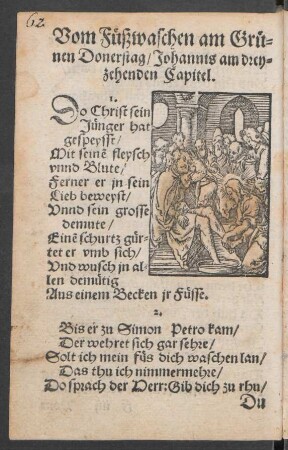 62.
Vom Füßwaschen am Grü-
nen Donerstag/ Johannis am drey-
zehenden Capitel.
1.
Do Christ sein
Jünger hat
gespeysst/
Mit seinē fleysch
vnnd Blute/
Ferner er jn sein
Lieb beweyst/
Vnnd sein grosse
demute/
Einē schurtz gür-
tet er vmb sich/
Vnd wusch jn al-
len demütig
Aus einem Becken jr Füsse.
2.
Bis er zu Simon Petro kam/
Der wehret sich gar sehre/
Solt ich mein füs dich waschen lan/
Das thu ich nimmermehre/
Do sprach der Herr: Gib dich zu rhu/
Du